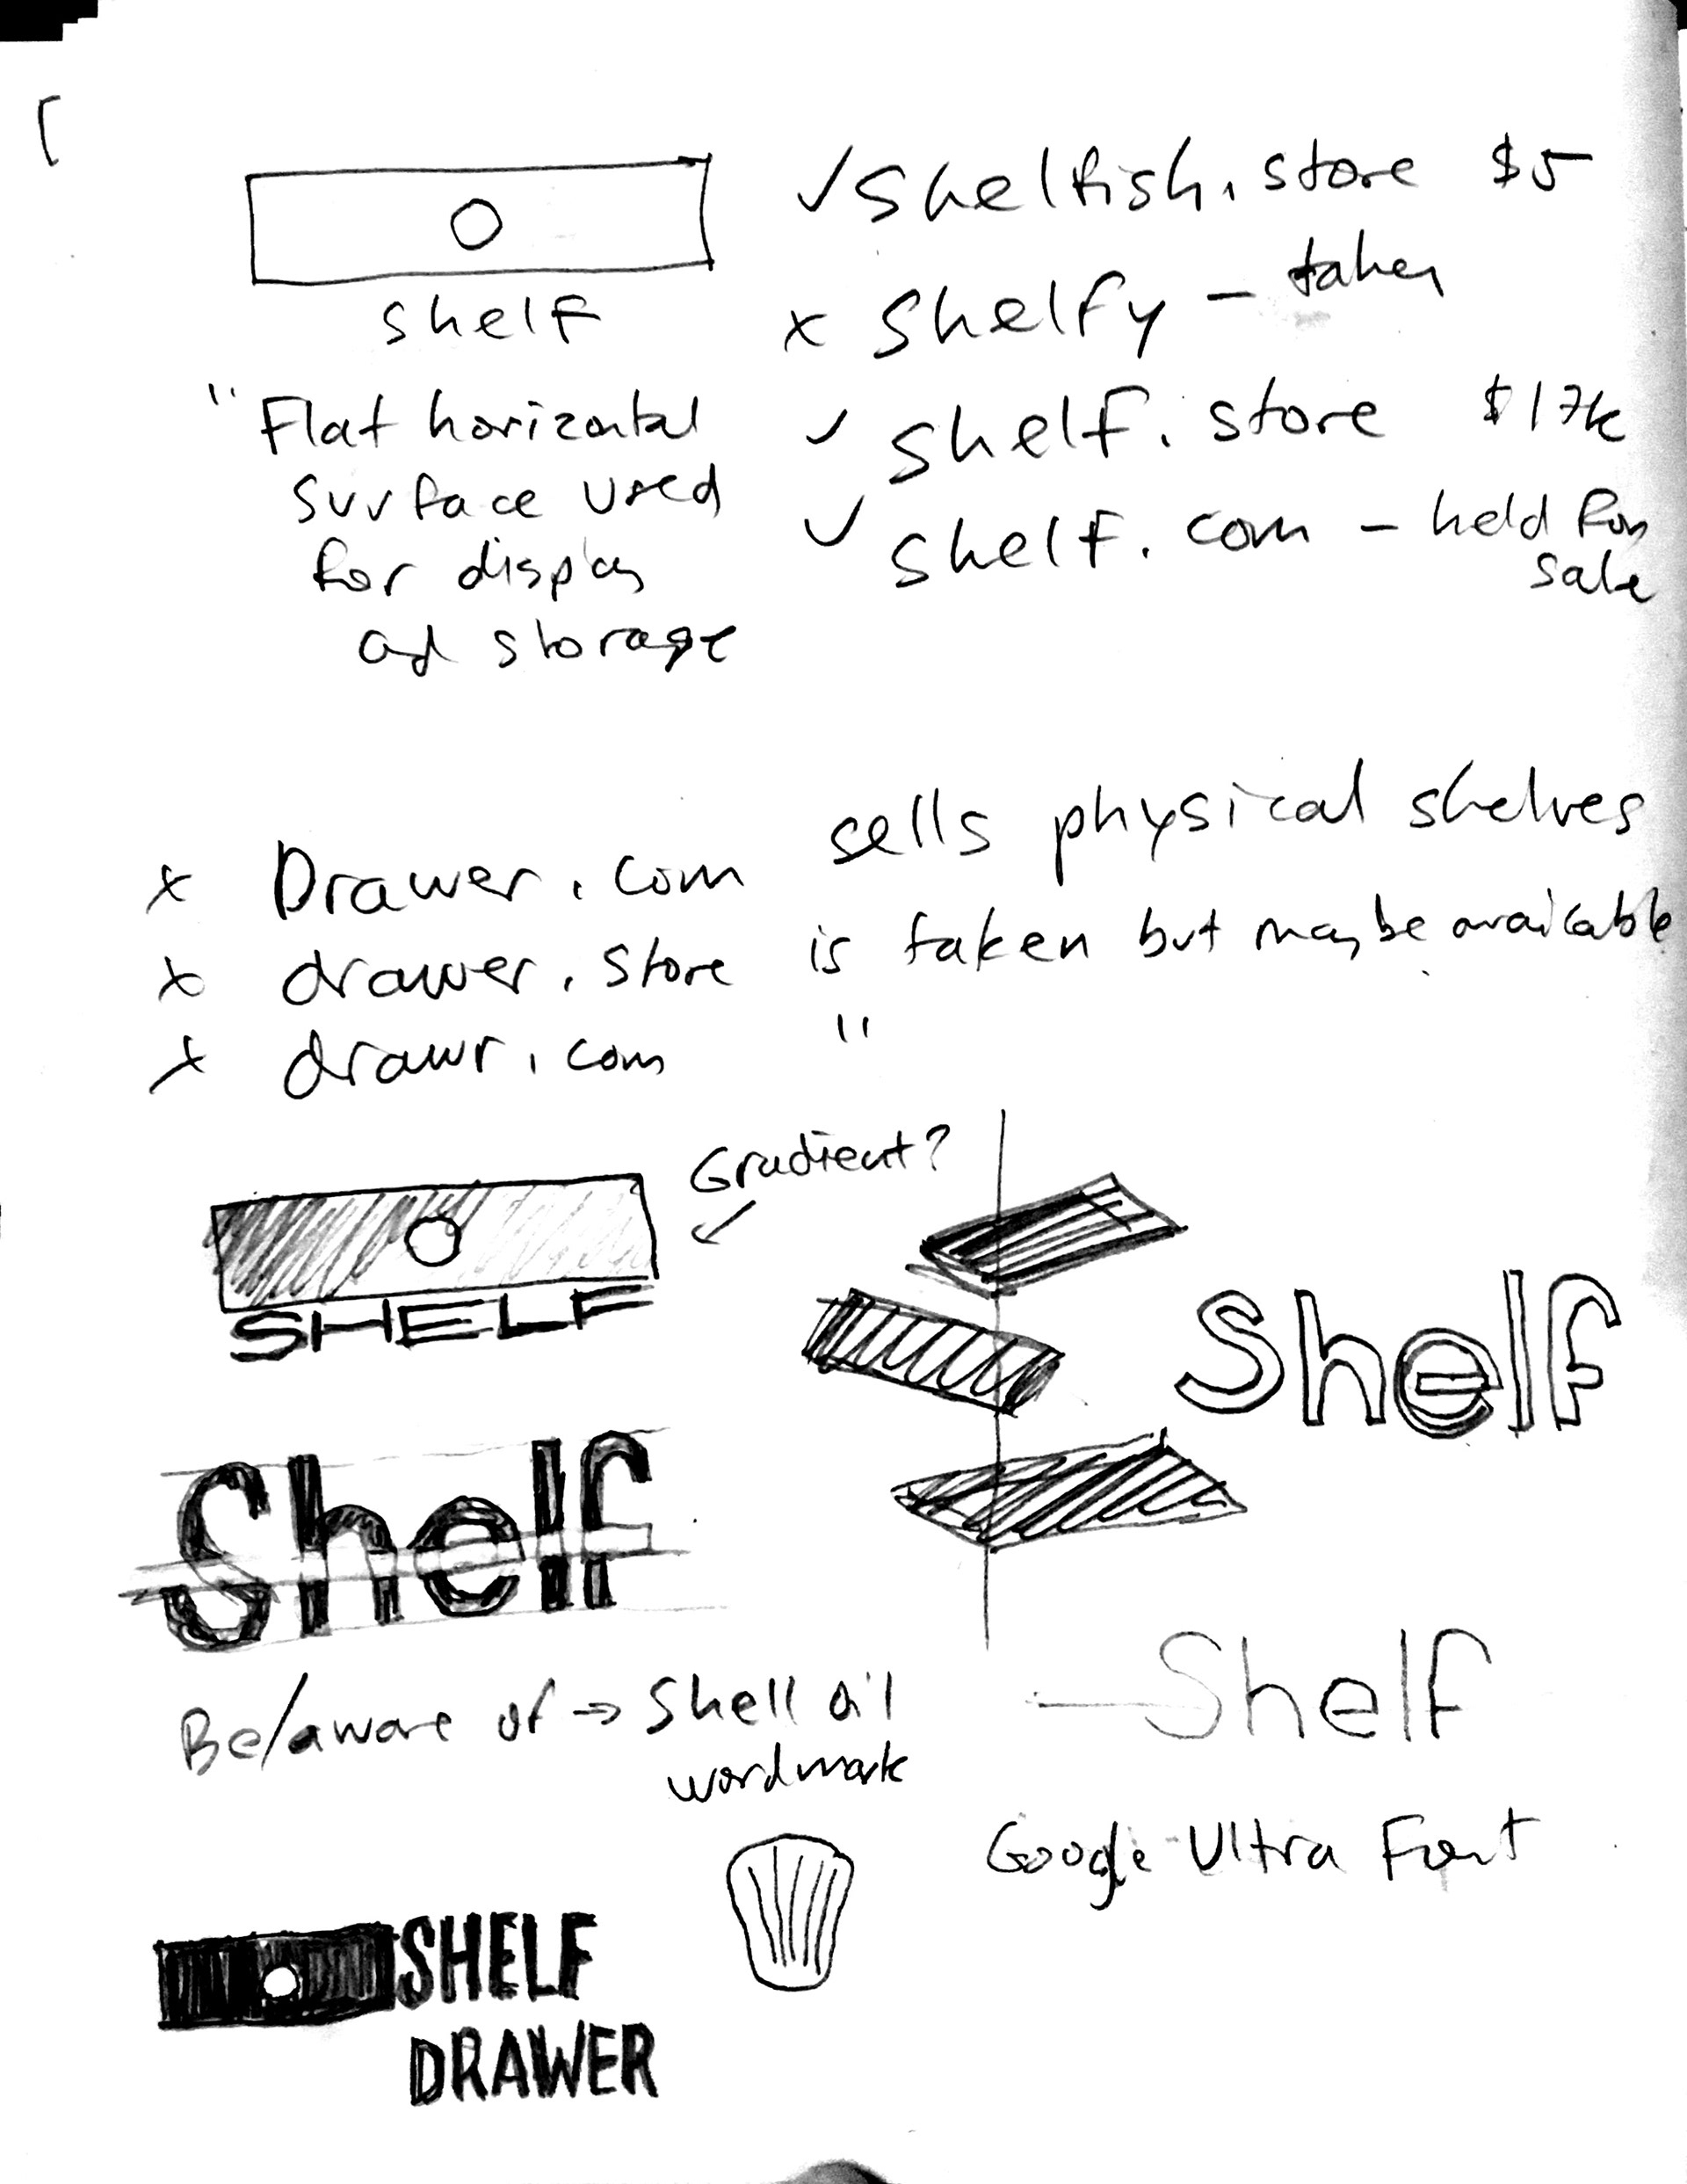 shelf
"Flat horizontal
surface used
for display
and storage
✓ shelfish.store $5
x shelfy – taken
✓ shelf.store $17k
✓ shelf.com – held for
sale
x Drawer.com sells physical shelves
x drawer.store is taken but may be available
x drawr.com "
Gradient?
SHELF
Shelf
Shelf
Be/aware of → Shell oil
wordmark
Shelf
Google Ultra Font
SHELF
DRAWER